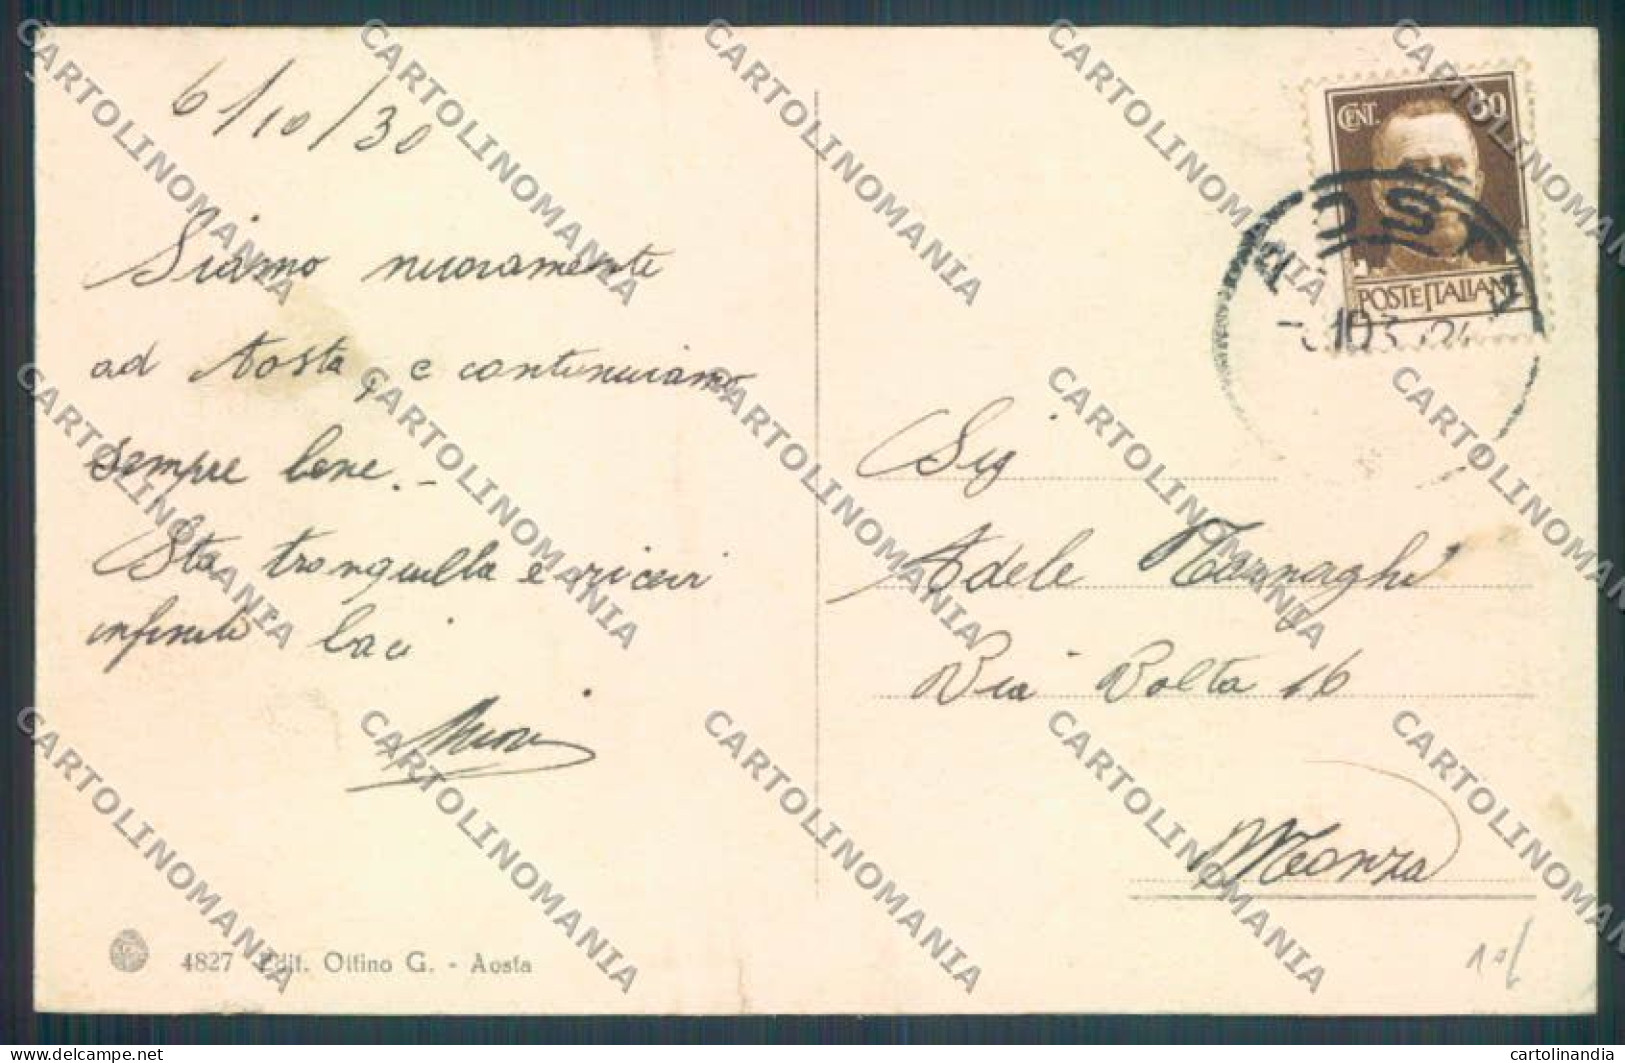 6/10/30
Siamo nuovamente
ad Aosta, e continuiamo
sempre bene.-
Sta tranquilla e ricevi
infiniti baci
CENT. 30
POSTE ITALIANE
AOSTA
Sig
Adele
Via Volta 16
Monza
4827 Edit. Ottino G. - Aosta
CARTOLINOMANIA
delcampe.net
cartolinandia